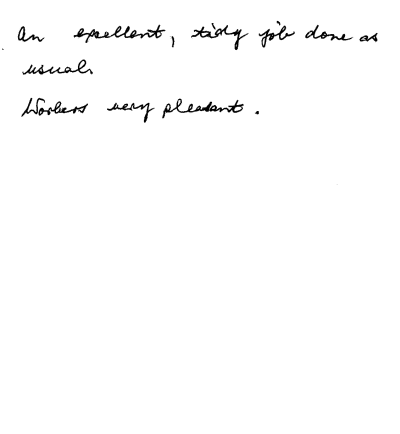 An excellent, tidy job done as
usual.
Workers very pleasant.